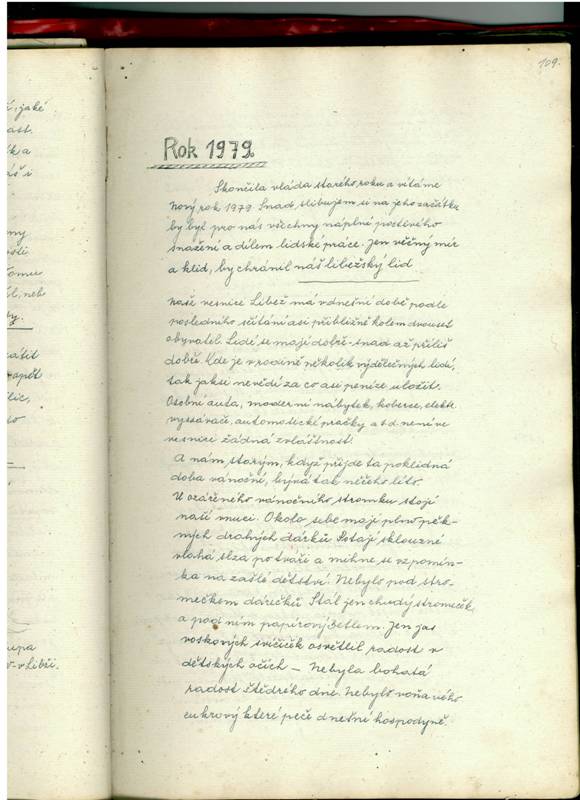 109.
Rok 1979.
Skončila vláda starého roku a vítáme
nový rok 1979. Snad slibujem si na jeho začátku
by byl pro nás všechny náplní poctivého
snažení a dílem lidské práce. Jen věčný mír
a klid, by chránil náš libežský lid
naše vesnice Libež má v dnešní době podle
posledního sčítání asi přibližně kolem dvouset
obyvatel. Lidé se mají dobře - snad až příliš
dobře. Kde je v rodině několik výdělečných lidí,
tak jaksi nevědí za co asi peníze uložit.
Osobní auta, moderní nábytek, koberce, elektr.
vyssávače, automatické pračky a t.d. není ve
vesnici žádná zvláštnost!
A nám starým, když přijde ta poklidná
doba vánoční, bývá tak něčeho líto.
U ozářeného vánočního stromku stojí
naši vnuci. Okolo sebe mají plno pěk-
ných drahých dárků. Potají sklouzne
vlahá slza po tváři a mihne se vzpomín-
ka na zašlé dětství. Nebylo pod stro-
mečkem dárečků. Stál jen chudý stromeček,
a pod ním papírový Betlem. Jen jas
voskových svíčiček osvětlil radost v
dětských očích - Nebyla bohatá
radost štědrého dne. Nebylo voňavého
cukroví které peče dnešní hospodyně.